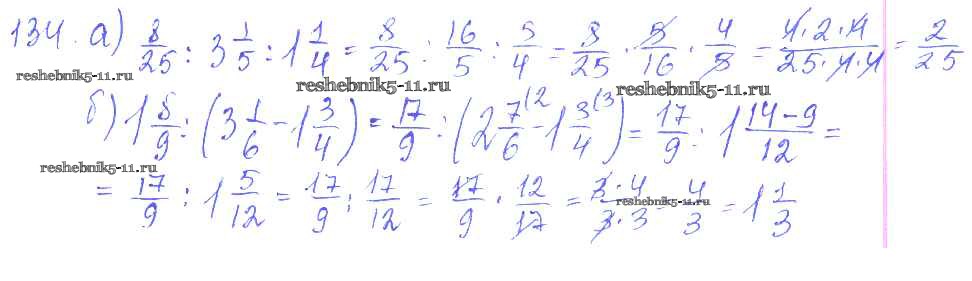 134. а) 8/25 : 3 1/5 : 1 1/4 = 8/25 : 16/5 : 5/4 = 8/25 · 5/16 · 4/5 = 4·2·4/25·4·4 = 2/25
reshebnik5-11.ru reshebnik5-11.ru reshebnik5-11.ru
б) 1 8/9 : (3 1/6 - 1 3/4) = 17/9 : (2 7/6 (2 - 1 3/4 (3) = 17/9 : 1 14-9/12 =
reshebnik5-11.ru
= 17/9 : 1 5/12 = 17/9 : 17/12 = 17/9 · 12/17 = 3·4/3·3 = 4/3 = 1 1/3
reshebnik5-11.ru